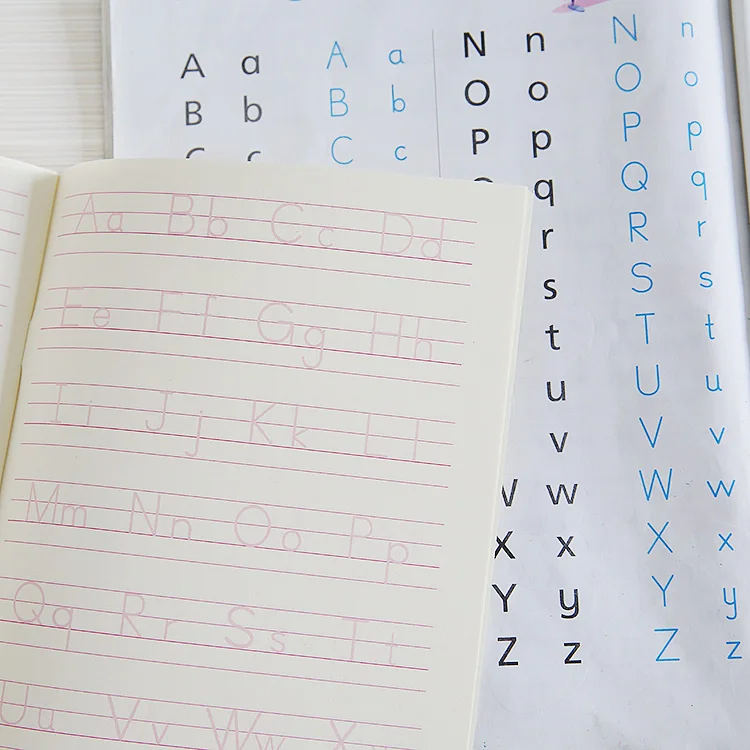 A a A a
B b B b
C c C c
N n N n
O o O o
P p P p
q Q q
r R r
s S s
t T t
u U u
v V v
W w W w
X x X x
Y y Y y
Z z Z z
Aa Bb Cc Dd
Ee Ff Gg Hh
Ii Jj Kk Ll
Mm Nn Oo Pp
Qq Rr Ss Tt
Uu Vv Ww X